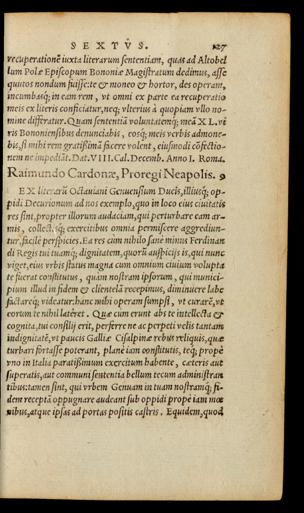 SEXTVS. 127
recuperationē iuxta literarum sententiam, quas ad Altobel
lum Polæ Episcopum Bononiæ Magistratum dedimus, asse
quutos nondum fuisse: te & moneo & hortor, des operam,
incumbasq; in eam rem, vt omni ex parte ea recuperatio
meis ex literis conficiatur, neq; vlterius à quopiam vllo no-
mine differatur. Quam sententiā voluntatemq; meā XL. vi
ris Bononiensibus denunciabis, eosq; meis verbis admone-
bis, si mihi rem gratissimā facere volent, eiusmodi cōfectio-
nem ne impediāt. Dat. VIII. Cal. Decemb. Anno I. Roma.
Raimundo Cardonæ, Proregi Neapolis. 9
EX literarū Octauiani Genuensium Ducis, illiusq; op-
pidi Decurionum ad nos exemplo, quo in loco eius ciuitatis
res sint, propter illorum audaciam, qui perturbare eam ar-
mis, collectisq; exercitibus omnia permiscere aggrediun-
tur, facilè perspicies. Ea res cùm nihilo sanè minus Ferdinan
di Regis tui tuamq; dignitatem, quorū auspicijs is, qui nunc
viget, eius vrbis status magna cum omnium ciuium volupta
te fuerat constitutus, quàm nostram ipsorum, qui munici-
pium illud in fidem & clientelā recepimus, diminuere labe
factareq; videatur: hanc mihi operam sumpsi, vt curarē, vt
eorum te nihil lateret. Quæ cum erunt abs te intellecta &
cognita, tui consilij erit, perferre ne ac perpeti velis tantam
indignitatē, vt paucis Galliæ Cisalpinæ rebus reliquis, quæ
turbari fortasse poterant, planè iam constitutis, teq; propè
vno in Italia paratissimum exercitum habente, cæteris aut
superatis, aut communi sententia bellum tecum administran
tibus: tamen sint, qui vrbem Genuam in tuam nostramq; fi-
dem receptā oppugnare audeant sub oppidi propè iam mœ
nibus, atque ipsas ad portas positis castris. Equidem, quod